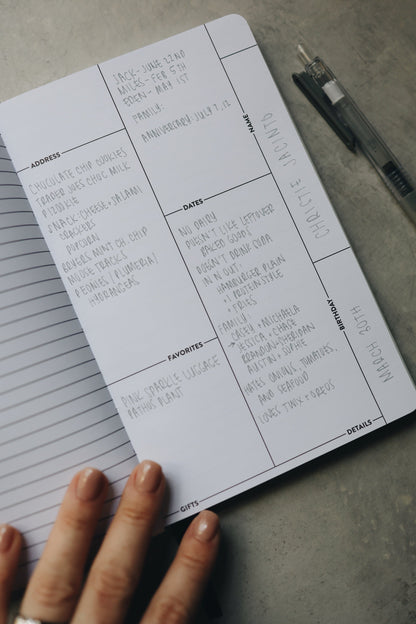 CHRISTIE JACINTO
NAME
MARCH 30TH
BIRTHDAY
ADDRESS
JACK - JUNE 22ND
MILES - FEB 5TH
EDEN - MAY 1ST
FAMILY:
ANNIVERSARY: JULY 7, 12
DATES
CHOCOLATE CHIP COOKIES
TRADER JOES CHOC MILK
PIZOOKIE
SNACK: CHEESE + SALAMI
CRACKERS
POPCORN
BREYERS MINT CH. CHIP
MOOSE TRACKS
PEONIES / PLUMERIA /
HYDRANGEAS
FAVORITES
NO DAIRY
DOESN'T LIKE LEFTOVER
BAKED GOODS
DOESN'T DRINK SODA
IN N OUT:
HAMBURGER PLAIN
+ PROTEIN STYLE
+ FRIES
FAMILY:
+ MICHAELA
JESSICA + CHASE
BRANDON + SHERIDAN
AUSTIN + SOPHIE
HATES ONIONS, TOMATOES,
AND SEAFOOD
LOVES TWIX + OREOS
DETAILS
PINK SPARKLE LUGGAGE
PATHOS PLANT
GIFTS